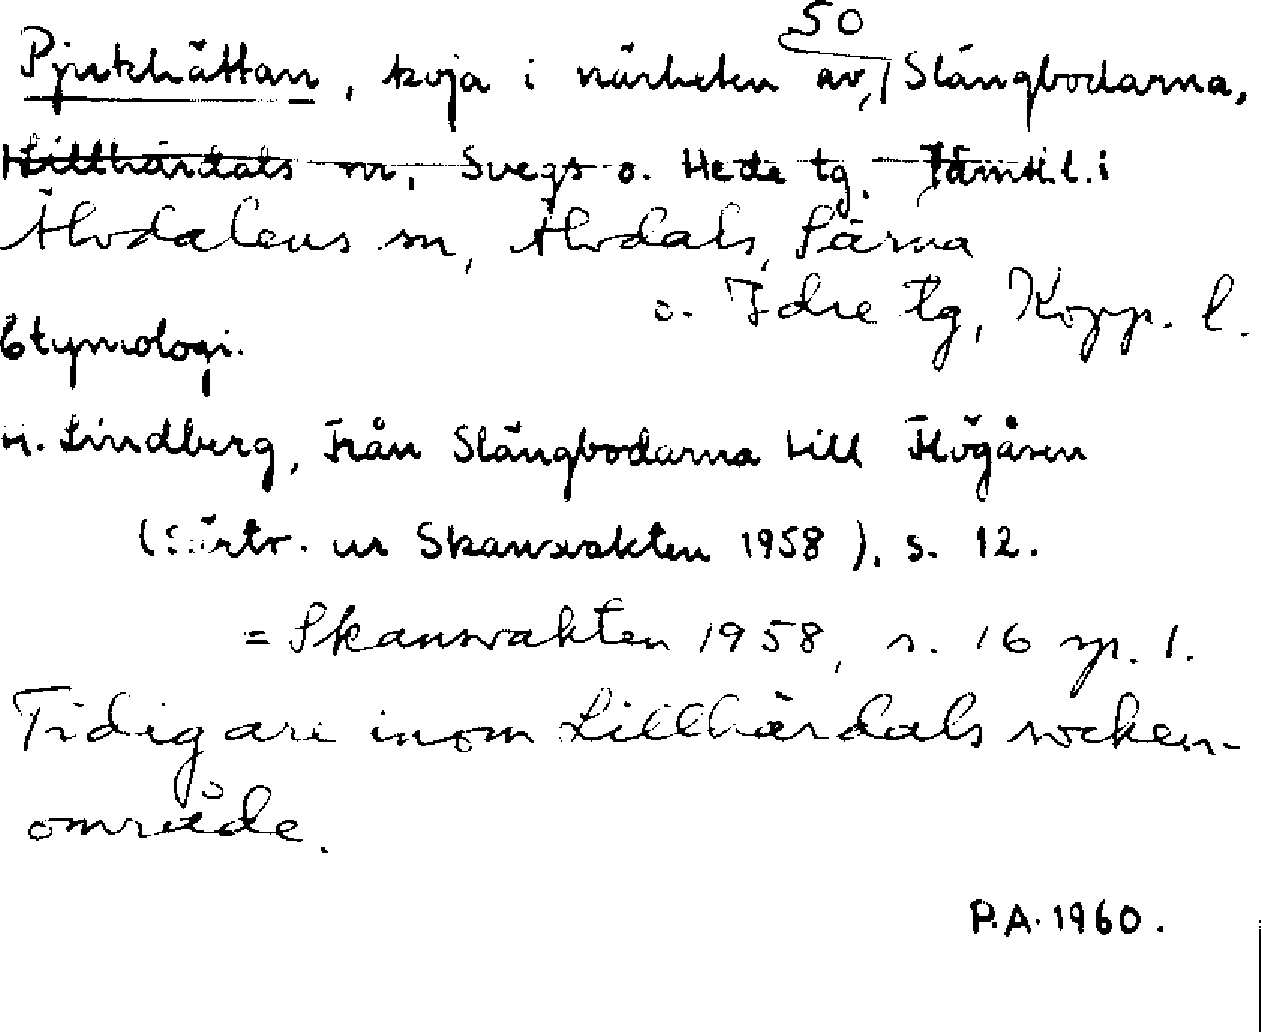 SO
Pjukhättan, koja i närheten av, Slängbodarna,
Lillhärdals sn, Svegs o. Hede tg. Jämtl. l. i
Älvdalens sn, Älvdals, Särna
o. Idre tg, Kopp. l.
Etymologi.
H. Lindberg, Från Slängbodarna till Högåsen
(Särtr. ur Skansvakten 1958), s. 12.
= Skansvakten 1958, s. 16 sp. 1.
Tidigare inom Lillhärdals socken-
område.
P.A. 1960.